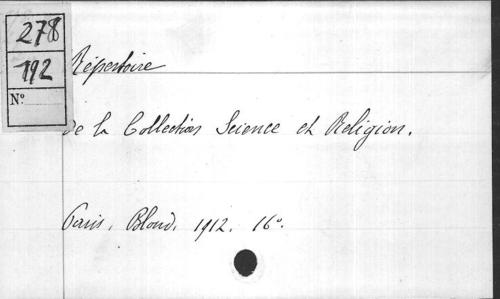 278
192
N°
Répertoire
de la Collection Science et Religion.
Paris, Bloud, 1912. 16°.